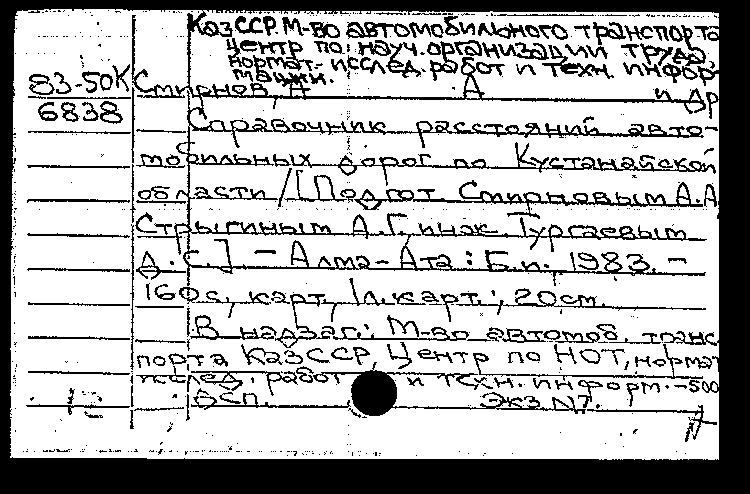 КазССР. М-во автомобильного транспорта
Центр по науч. организации труда,
нормат.-исслед. работ и техн. инфор-
мации.
83-50К Смирнов, А А и др
6838
Справочник расстояний авто-
мобильных дорог по Кустанайской
области / [Подгот Смирновым А.А
Стрыгиным А.Г. инж. Тургаевым
Д.С.] – Алма-Ата : Б.и., 1983. –
160 с., карт., 1 л. карт. ; 20 см.
В надзаг.: М-во автомоб. транс
порта КазССР, Центр по НОТ, нормат
исслед. работ и техн. информ. – 500
ДСП. Экз. N7.